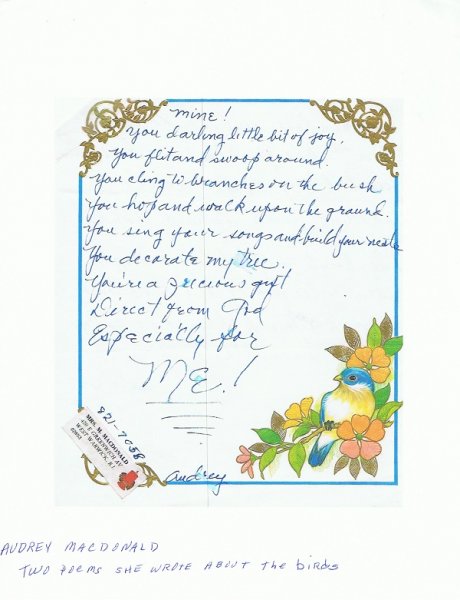 mine!
You darling little bit of joy,
You flit and swoop around.
You cling to branches on the bush
You hop and walk upon the ground.
You sing your songs and build your nests
You decorate my tree.
You're a precious gift
Direct from God
Especially for
ME!
821-7058
MRS. M. MACDONALD
WEST WARWICK, RI
Audrey
AUDREY MACDONALD
TWO POEMS SHE WROTE ABOUT the birds